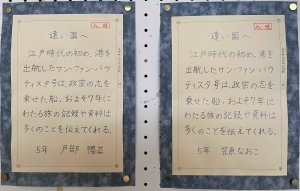 入選
遠い国へ
江戸時代の初め、港を
出航したサン・ファン・バウ
ティスタ号は、政宗の志を
乗せた船、およそ7年に
わたる旅の記録や資料は
多くのことを伝えてくれる。
5年 戸部 陽立
入選
遠い国へ
江戸時代の初め、港を
出航したサン・ファン・バウ
ティスタ号は、政宗の志を
乗せた船、およそ7年に
わたる旅の記録や資料は
多くのことを伝えてくれる。
5年 笠原 なおこ